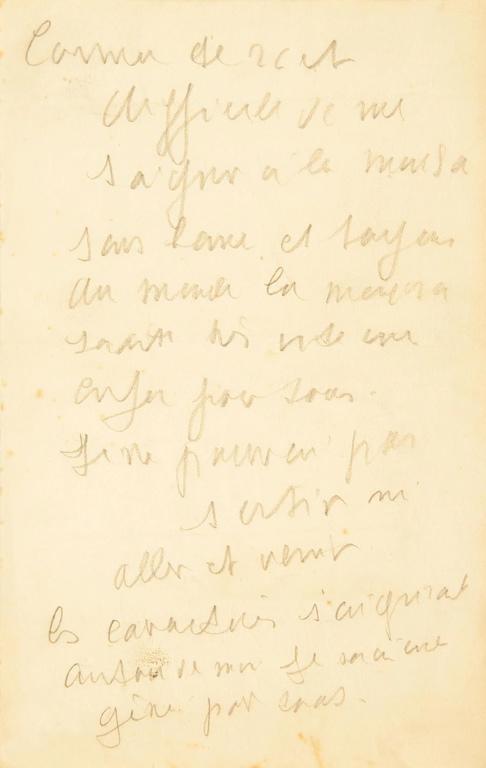 Comme il serait
difficile de me
soigner à la maison
sans bonne et toujours
du monde la maison
serait très vite un
enfer pour tous.
Je ne pourrai pas
sortir ni
aller et venir
les caractères s'aigriraient
autour de moi je serai une
gêne pour tous.